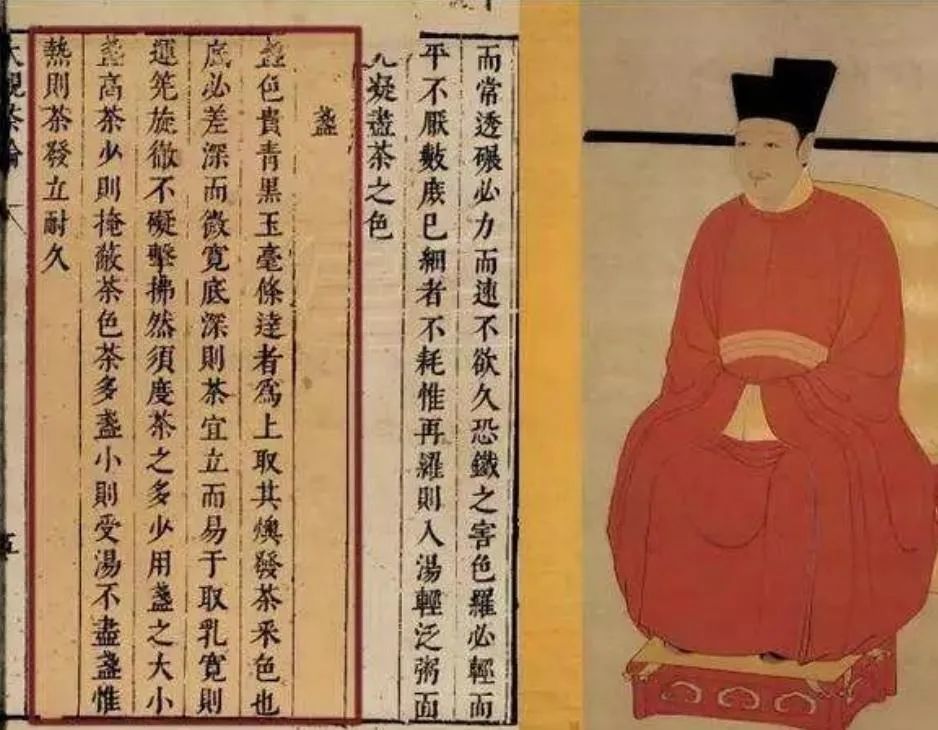 而常透碾必力而速不欲久恐鐵之害色羅必輕而
平不厭數庻已細者不耗惟再羅則入湯輕泛粥面
光凝盡茶之色
盞
盞色貴青黑玉毫條達者爲上取其燠發茶采色也
底必差深而微寬底深則茶宜立而易于取乳寬則
運筅旋徹不礙擊拂然須度茶之多少用盞之大小
盞高茶少則掩蔽茶色茶多盞小則受湯不盡盞惟
熱則茶發立耐久
大觀茶論